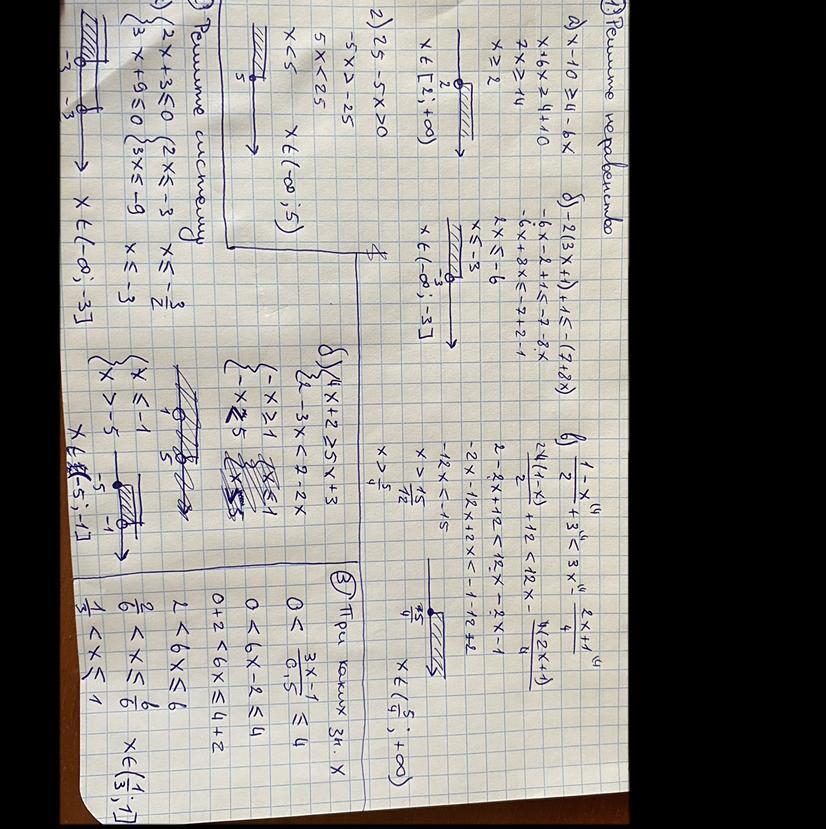 ① Решите неравенство
а) x - 10 ≥ 4 - 6x
x + 6x ≥ 4 + 10
7x ≥ 14
x ≥ 2
2
x ∈ [2; +∞)
б) -2(3x+1) + 1 ≤ -(7+8x)
-6x - 2 + 1 ≤ -7 - 8x
-6x + 8x ≤ -7 + 2 - 1
2x ≤ -6
x ≤ -3
-3
x ∈ (-∞; -3]
в) (1-x)/2 + 3 < 3x - (2x+1)/4
/2 + 12 < 12x - 4(2x+1)/4
2 - 2x + 12 < 12x - 2x - 1
-2x - 12x + 2x < -1 - 12 + 2
-12x < -15
x > 15/12
x > 5/4
x ∈ (5/4; +∞)
г) 25 - 5x > 0
-5x > -25
5x < 25
x < 5
x ∈ (-∞; 5)
5
Решите систему
{2x + 3 ≤ 0 {2x ≤ -3 x ≤ -3/2
{3x + 9 ≤ 0 {3x ≤ -9 x ≤ -3
-3
x ∈ (-∞; -3]
б) {4x + 2 ≥ 5x + 3
{2 - 3x < 7 - 2x
{-x ≥ 1
{x ≤ -1
{x > -5
-5 -1
x ∈ (-5; -1]
③ При каких зн. x
0 < (3x-1)/0,5 ≤ 4
0 < 6x - 2 ≤ 4
0 + 2 < 6x ≤ 4 + 2
2 < 6x ≤ 6
2/6 < x ≤ 6/6
1/3 < x ≤ 1
x ∈ (1/3; 1]